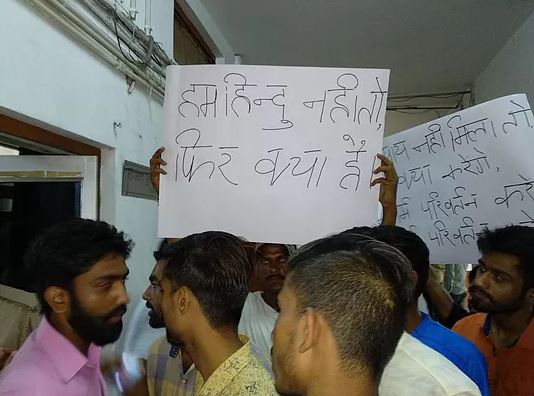 हम हिन्दु नहीं तो,
फिर क्या हैं
नही मिला तो
क्या करेगे,
परिवर्तन करे
परिवर्तन